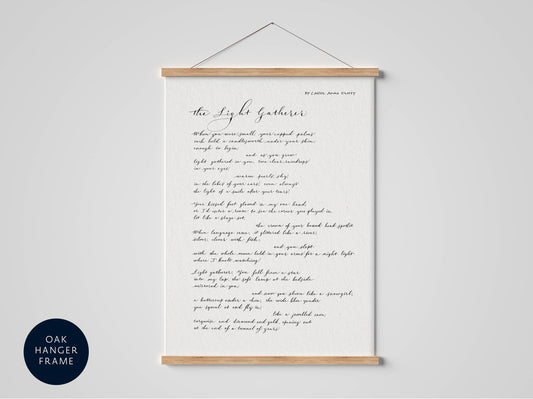 By Carol Ann Duffy
The Light Gatherer
When you were small, your cupped palms
each held a candlesworth under your skin,
enough to begin,
and as you grew,
light gathered in you, two clear raindrops
in your eyes,
warm pearls, shy,
in the lobes of your ears, even always
the light of a smile after your tears.
Your kissed feet glowed in my one hand,
or I'd enter a room to see the corner you played in
lit like a stage set,
the crown of your bowed head spotlit.
When language came, it glittered like a river,
silver, clever with fish,
and you slept
with the whole moon held in your arms for a night light
where I knelt watching.
Light gatherer. You fell from a star
into my lap, the soft lamp at the bedside
mirrored in you,
and now you shine like a snowgirl,
a buttercup under a chin, the wide blue yonder
you squeal at and fly in,
like a jewelled cave,
turquoise and diamond and gold, opening out
at the end of a tunnel of years.
OAK
HANGER
FRAME